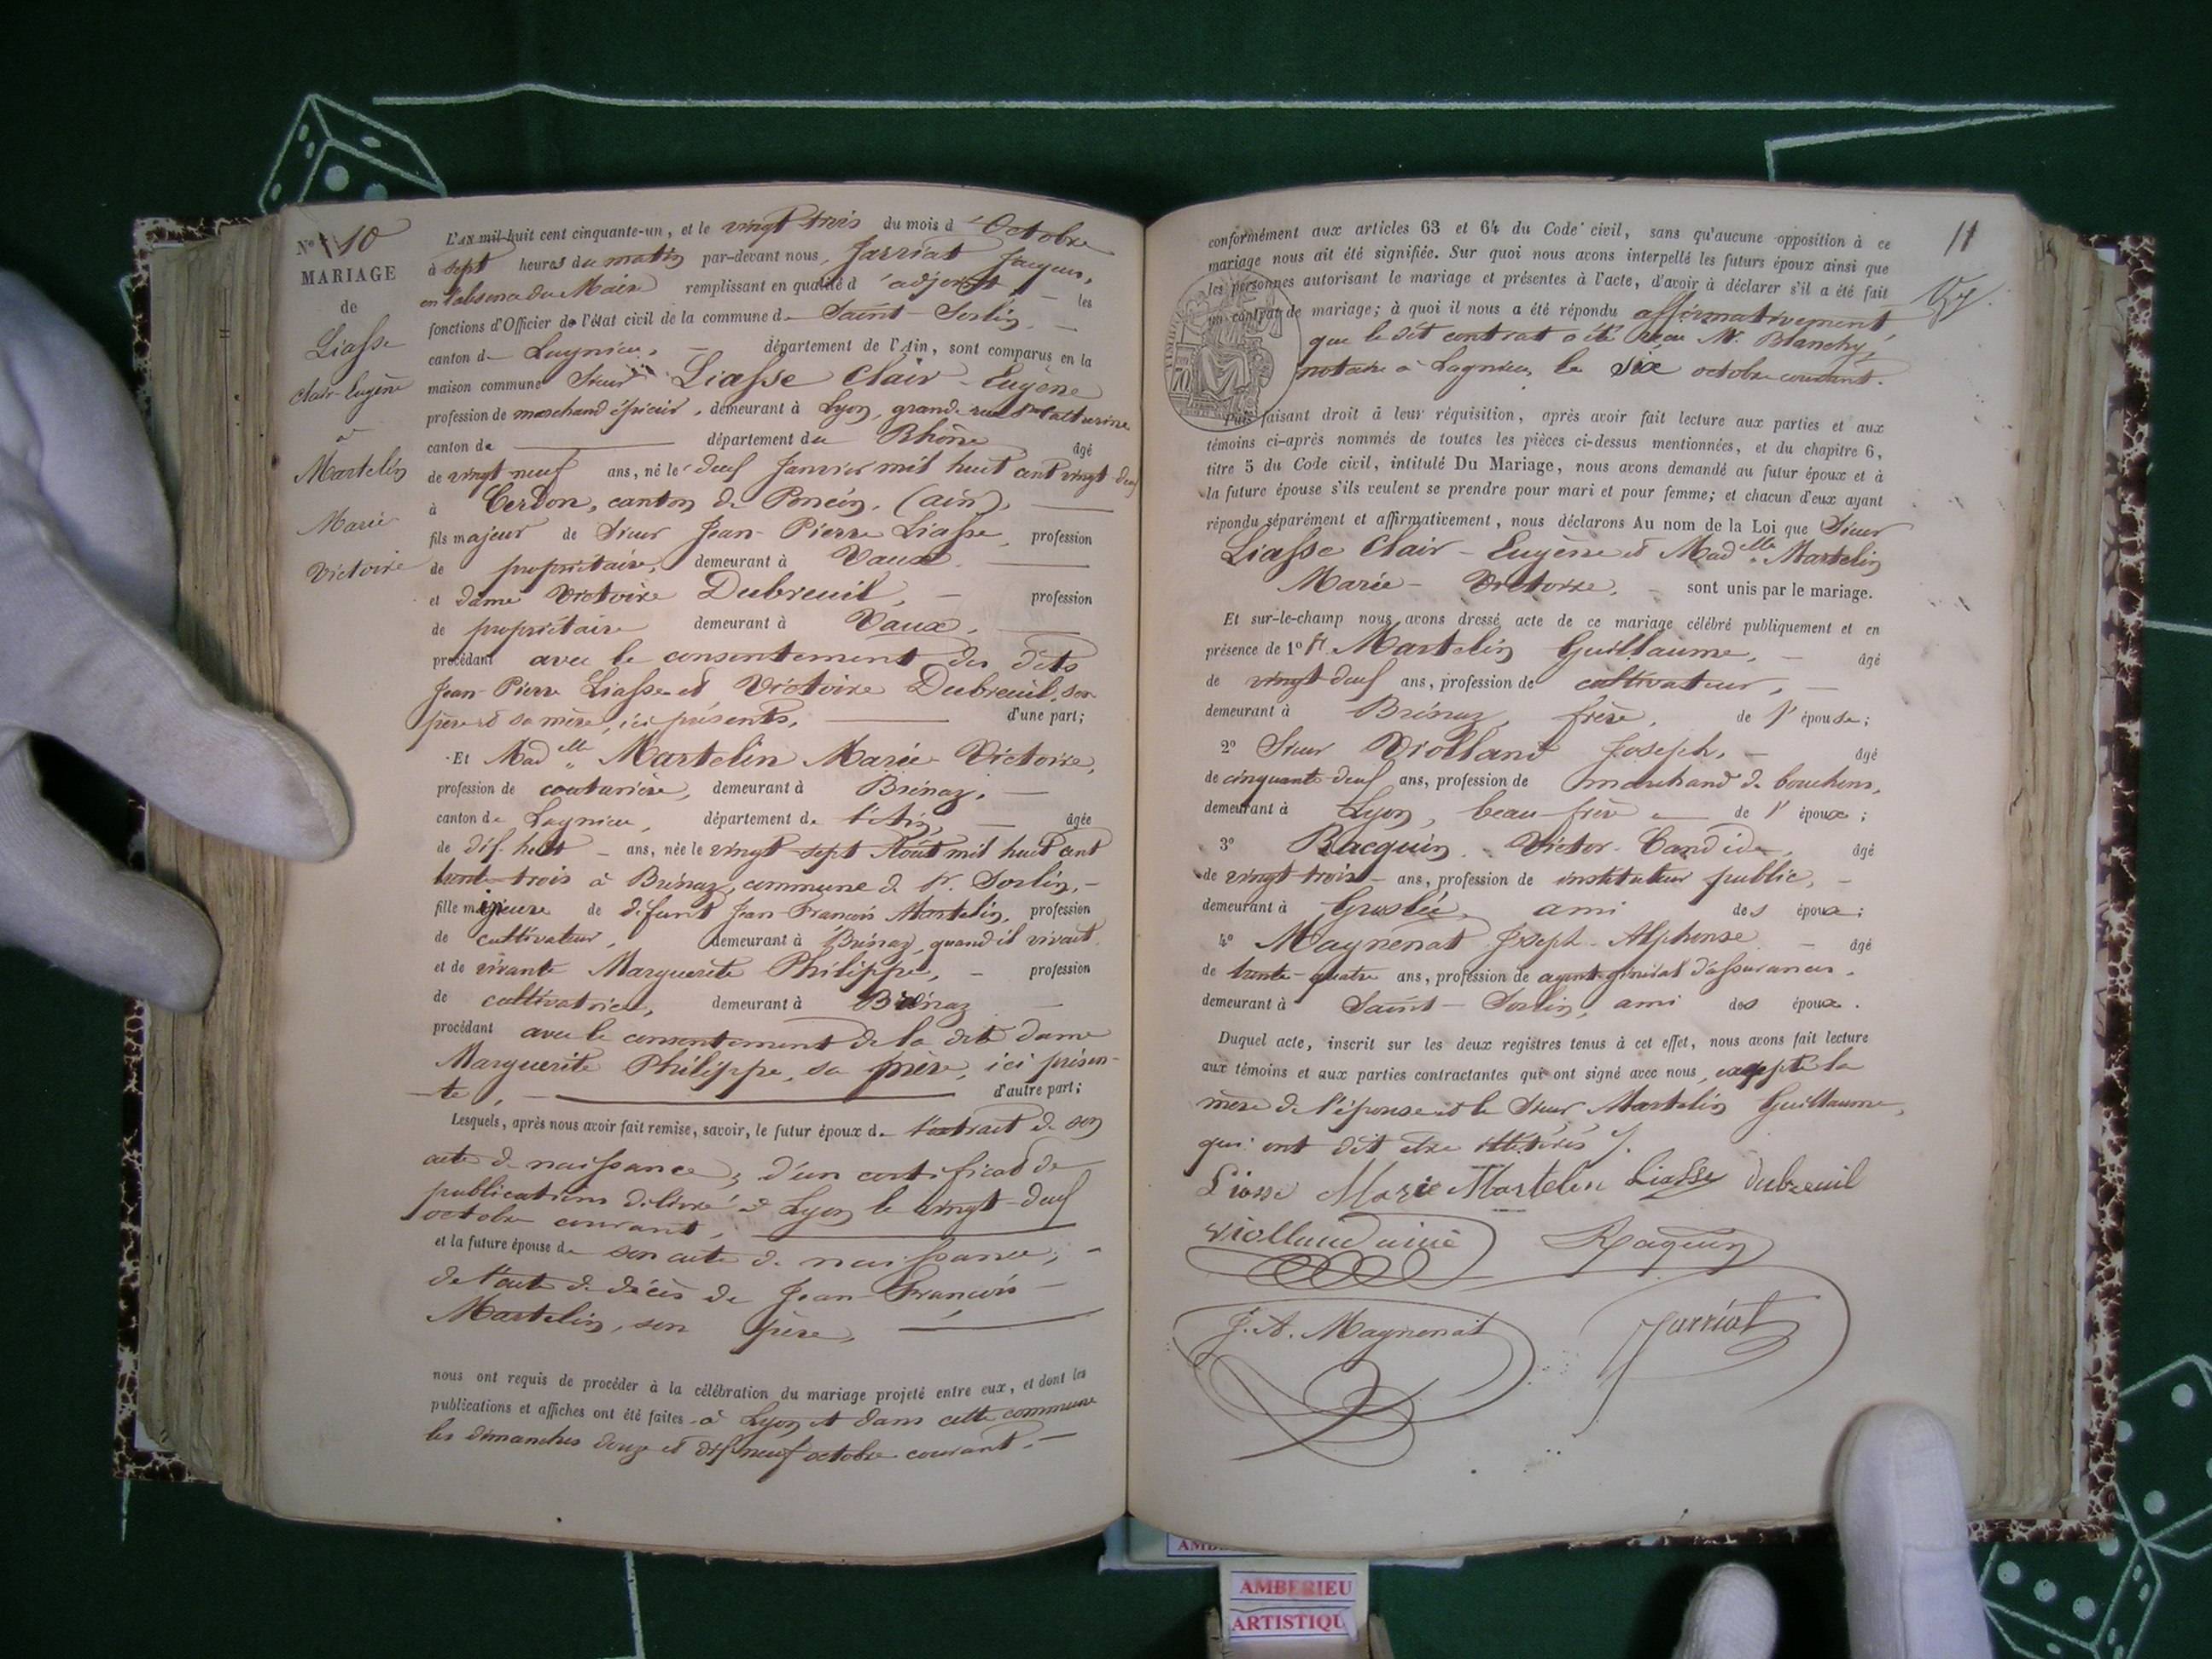 N° 10
MARIAGE
de
Liasse
Clair-Eugène
à
Martelin
Marie
Victoire
L'AN mil huit cent cinquante-un, et le vingt-trois du mois d'Octobre
à sept heures du matin par-devant nous, Jarriat Jacques,
en l'absence du Maire remplissant en qualité d'adjoint, les
fonctions d'Officier de l'état civil de la commune de Saint-Sorlin,
canton de Lagnieu, département de l'Ain, sont comparus en la
maison commune Sieur Liasse Clair-Eugène
profession de marchand épicier, demeurant à Lyon, grande rue Ste Catherine
canton de département du Rhône âgé
de vingt-neuf ans, né le deux Janvier mil huit cent vingt-deux
à Cerdon, canton de Poncin, (ain),
fils majeur de Sieur Jean-Pierre Liasse, profession
de propriétaire, demeurant à Vaux.
et dame Victoire Dubreuil, profession
de propriétaire demeurant à Vaux,
procédant avec le consentement des dits
Jean-Pierre Liasse et Victoire Dubreuil, son
père et sa mère, ici présents, d'une part;
Et Madelle Martelin Marie-Victoire,
profession de couturière, demeurant à Brénaz,
canton de Lagnieu, département de l'Ain, âgée
de dix-huit ans, née le vingt-sept Août mil huit cent
trente-trois à Brénaz, commune de St. Sorlin,
fille mineure de défunt Jean-François Martelin, profession
de cultivateur, demeurant à Brénaz, quand il vivait,
et de vivante Marguerite Philippe, profession
de cultivatrice, demeurant à Brénaz
procédant avec le consentement de la dite dame
Marguerite Philippe, sa mère, ici présen-
te, d'autre part;
Lesquels, après nous avoir fait remise, savoir, le futur époux de l'extrait de son
acte de naissance; d'un certificat de
publications délivré à Lyon le vingt-deux
octobre courant,
et la future épouse de son acte de naissance;
de l'acte de décès de Jean-François
Martelin, son père,
nous ont requis de procéder à la célébration du mariage projeté entre eux, et dont les
publications et affiches ont été faites à Lyon et dans cette commune
les dimanches douze et dix-neuf octobre courant.
11
conformément aux articles 63 et 64 du Code civil, sans qu'aucune opposition à ce
mariage nous ait été signifiée. Sur quoi nous avons interpellé les futurs époux ainsi que
les personnes autorisant le mariage et présentes à l'acte, d'avoir à déclarer s'il a été fait
un contrat de mariage; à quoi il nous a été répondu affirmativement,
que le dit contrat a été reçu Me. Blanchy,
notaire à Lagnieu, le six octobre courant.
Puis faisant droit à leur réquisition, après avoir fait lecture aux parties et aux
témoins ci-après nommés de toutes les pièces ci-dessus mentionnées, et du chapitre 6,
titre 5 du Code civil, intitulé Du Mariage, nous avons demandé au futur époux et à
la future épouse s'ils veulent se prendre pour mari et pour femme; et chacun d'eux ayant
répondu séparément et affirmativement, nous déclarons Au nom de la Loi que Sieur
Liasse Clair-Eugène et Madelle Martelin
Marie-Victoire, sont unis par le mariage.
Et sur-le-champ nous avons dressé acte de ce mariage célébré publiquement et en
présence de 1° Sr Martelin Guillaume, âgé
de vingt-deux ans, profession de cultivateur,
demeurant à Brénaz, frère, de l'épouse;
2° Sieur Violland Joseph, âgé
de cinquante-deux ans, profession de marchand de bouchons,
demeurant à Lyon, beau-frère de l'époux;
3° Racquin Victor-Candide, âgé
de vingt-trois ans, profession de instituteur public,
demeurant à Groslée, ami des époux;
4° Magnenat Joseph-Alphonse âgé
de trente-quatre ans, profession de agent-général d'assurances,
demeurant à Saint-Sorlin, ami des époux.
Duquel acte, inscrit sur les deux registres tenus à cet effet, nous avons fait lecture
aux témoins et aux parties contractantes qui ont signé avec nous, excepté la
mère de l'épouse et le Sieur Martelin Guillaume,
qui ont dit être illétirés
Liasse Marie Martelin Liasse dubreuil
Violland ainé Raquin
J. A. Magnenat Jarriat
AMBERIEU
ARTISTIQU